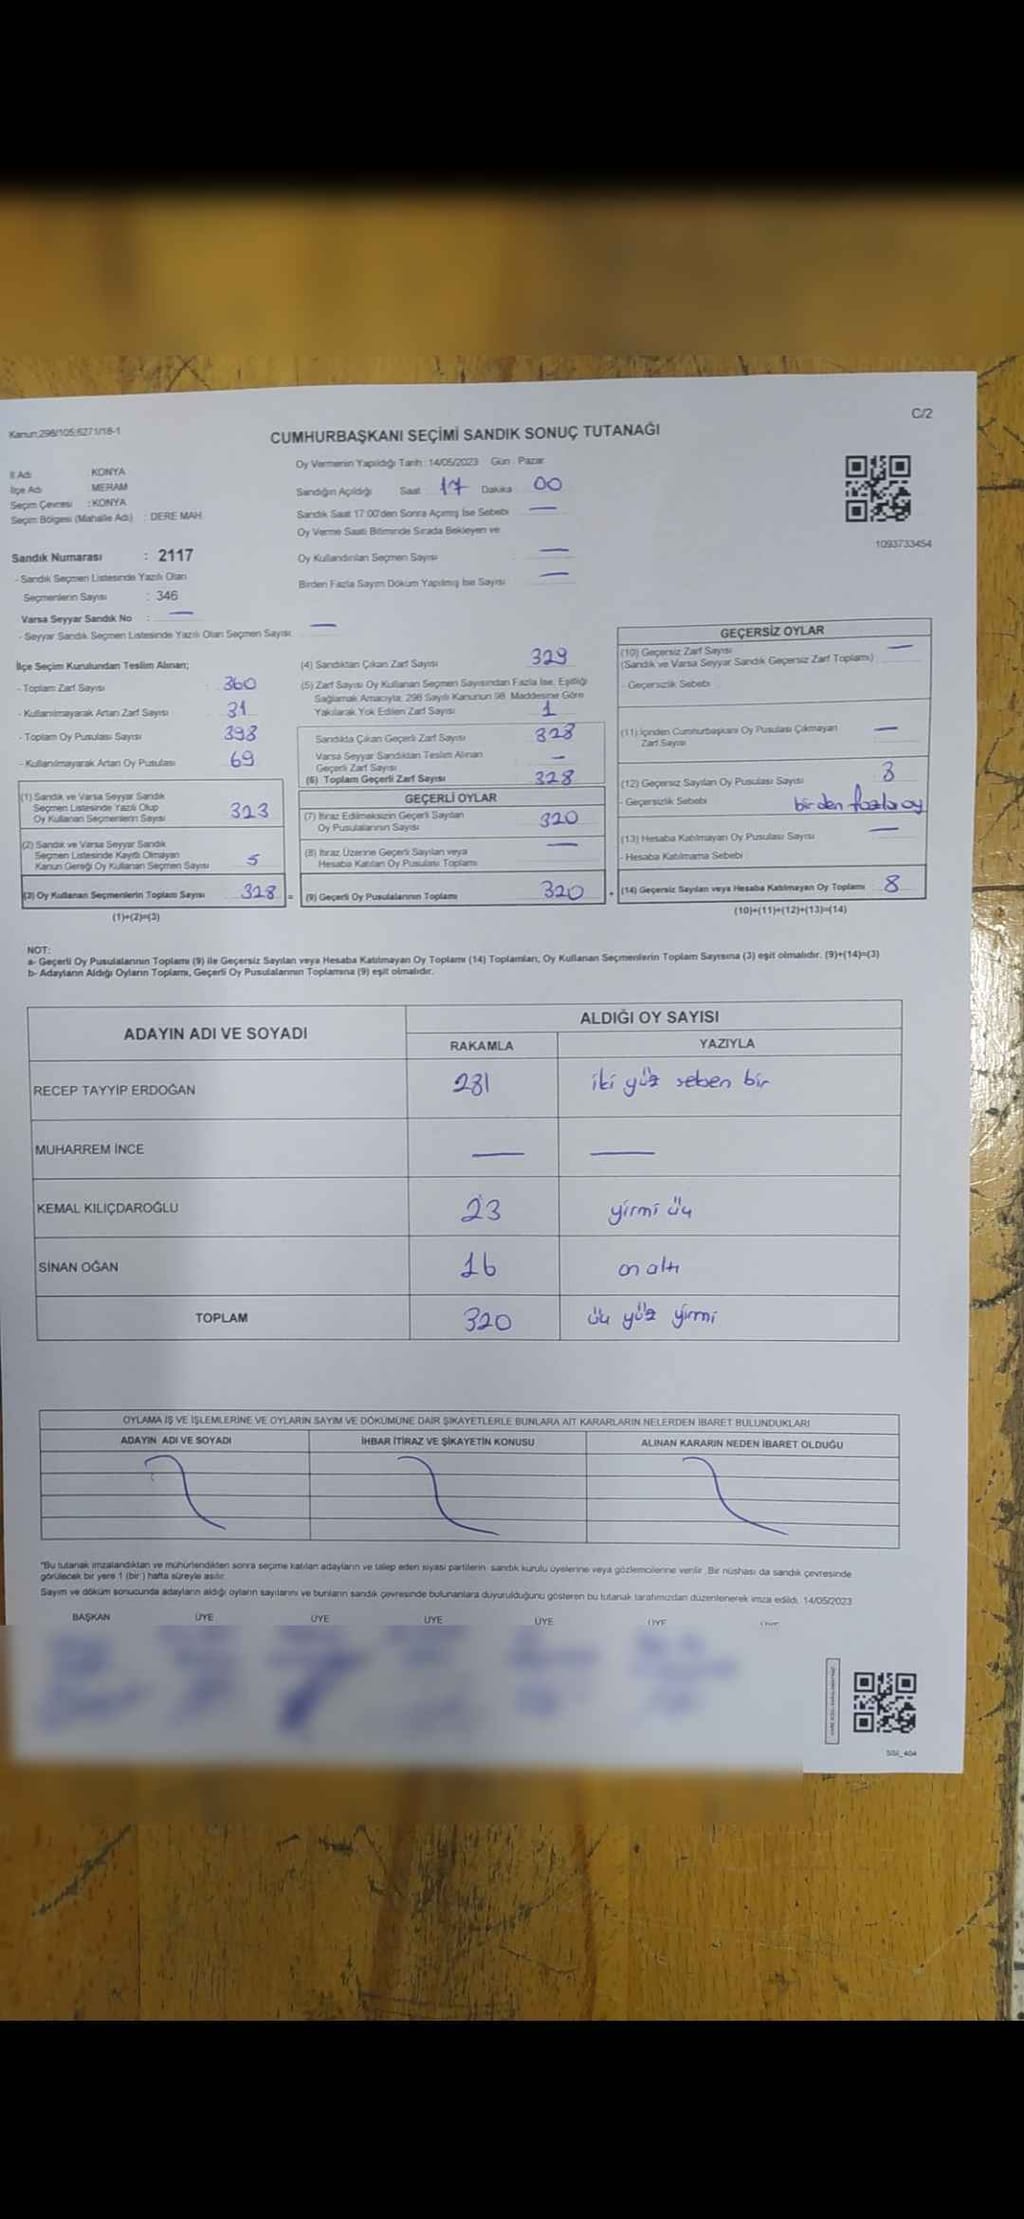 C/2
Kanun:298/105;6271/18-1
CUMHURBAŞKANI SEÇİMİ SANDIK SONUÇ TUTANAĞI
İl Adı KONYA
İlçe Adı MERAM
Seçim Çevresi : KONYA
Seçim Bölgesi (Mahalle Adı) : DERE MAH.
Oy Vermenin Yapıldığı Tarih : 14/05/2023 Gün : Pazar
Sandığın Açıldığı Saat 17 Dakika 00
Sandık Saat 17:00'den Sonra Açılmış İse Sebebi —
Oy Verme Saati Bitiminde Sırada Bekleyen ve
Oy Kullandırılan Seçmen Sayısı —
Birden Fazla Sayım Döküm Yapılmış İse Sayısı —
1093733454
Sandık Numarası : 2117
- Sandık Seçmen Listesinde Yazılı Olan
Seçmenlerin Sayısı : 346
Varsa Seyyar Sandık No : —
- Seyyar Sandık Seçmen Listesinde Yazılı Olan Seçmen Sayısı —
İlçe Seçim Kurulundan Teslim Alınan;
- Toplam Zarf Sayısı 360
- Kullanılmayarak Artan Zarf Sayısı 31
- Toplam Oy Pusulası Sayısı 398
- Kullanılmayarak Artan Oy Pusulası 69
(1) Sandık ve Varsa Seyyar Sandık
Seçmen Listesinde Yazılı Olup
Oy Kullanan Seçmenlerin Sayısı 323
(2) Sandık ve Varsa Seyyar Sandık
Seçmen Listesinde Kayıtlı Olmayan
Kanun Gereği Oy Kullanan Seçmen Sayısı 5
(3) Oy Kullanan Seçmenlerin Toplam Sayısı 328 =
(1)+(2)=(3)
(4) Sandıktan Çıkan Zarf Sayısı 329
(5) Zarf Sayısı Oy Kullanan Seçmen Sayısından Fazla İse, Eşitliği
Sağlamak Amacıyla; 298 Sayılı Kanunun 98. Maddesine Göre
Yakılarak Yok Edilen Zarf Sayısı 1
Sandıkta Çıkan Geçerli Zarf Sayısı 328
Varsa Seyyar Sandıktan Teslim Alınan
Geçerli Zarf Sayısı —
(6) Toplam Geçerli Zarf Sayısı 328
GEÇERLİ OYLAR
(7) İtiraz Edilmeksizin Geçerli Sayılan
Oy Pusulalarının Sayısı 320
(8) İtiraz Üzerine Geçerli Sayılan veya
Hesaba Katılan Oy Pusulası Toplamı —
(9) Geçerli Oy Pusulalarının Toplamı 320 +
GEÇERSİZ OYLAR
(10) Geçersiz Zarf Sayısı —
(Sandık ve Varsa Seyyar Sandık Geçersiz Zarf Toplamı)
- Geçersizlik Sebebi
(11) İçinden Cumhurbaşkanı Oy Pusulası Çıkmayan
Zarf Sayısı —
(12) Geçersiz Sayılan Oy Pusulası Sayısı 8
- Geçersizlik Sebebi birden fazla oy
(13) Hesaba Katılmayan Oy Pusulası Sayısı —
- Hesaba Katılmama Sebebi
(14) Geçersiz Sayılan veya Hesaba Katılmayan Oy Toplamı 8
(10)+(11)+(12)+(13)=(14)
NOT:
a- Geçerli Oy Pusulalarının Toplamı (9) ile Geçersiz Sayılan veya Hesaba Katılmayan Oy Toplamı (14) Toplamları, Oy Kullanan Seçmenlerin Toplam Sayısına (3) eşit olmalıdır. (9)+(14)=(3)
b- Adayların Aldığı Oyların Toplamı, Geçerli Oy Pusulalarının Toplamına (9) eşit olmalıdır.
ADAYIN ADI VE SOYADI ALDIĞI OY SAYISI
RAKAMLA YAZIYLA
RECEP TAYYİP ERDOĞAN 281 iki yüz seksen bir
MUHARREM İNCE — —
KEMAL KILIÇDAROĞLU 23 yirmi üç
SİNAN OĞAN 16 on altı
TOPLAM 320 üç yüz yirmi
OYLAMA İŞ VE İŞLEMLERİNE VE OYLARIN SAYIM VE DÖKÜMÜNE DAİR ŞİKAYETLERLE BUNLARA AİT KARARLARIN NELERDEN İBARET BULUNDUKLARI
ADAYIN ADI VE SOYADI İHBAR İTİRAZ VE ŞİKAYETİN KONUSU ALINAN KARARIN NEDEN İBARET OLDUĞU
"Bu tutanak imzalandıktan ve mühürlendikten sonra seçime katılan adayların ve talep eden siyasi partilerin sandık kurulu üyelerine veya gözlemcilerine verilir. Bir nüshası da sandık çevresinde
görülecek bir yere 1 (bir) hafta süreyle asılır.
Sayım ve döküm sonucunda adayların aldığı oyların sayılarını ve bunların sandık çevresinde bulunanlara duyurulduğunu gösteren bu tutanak tarafımızdan düzenlenerek imza edildi. 14/05/2023
BAŞKAN ÜYE ÜYE ÜYE ÜYE ÜYE